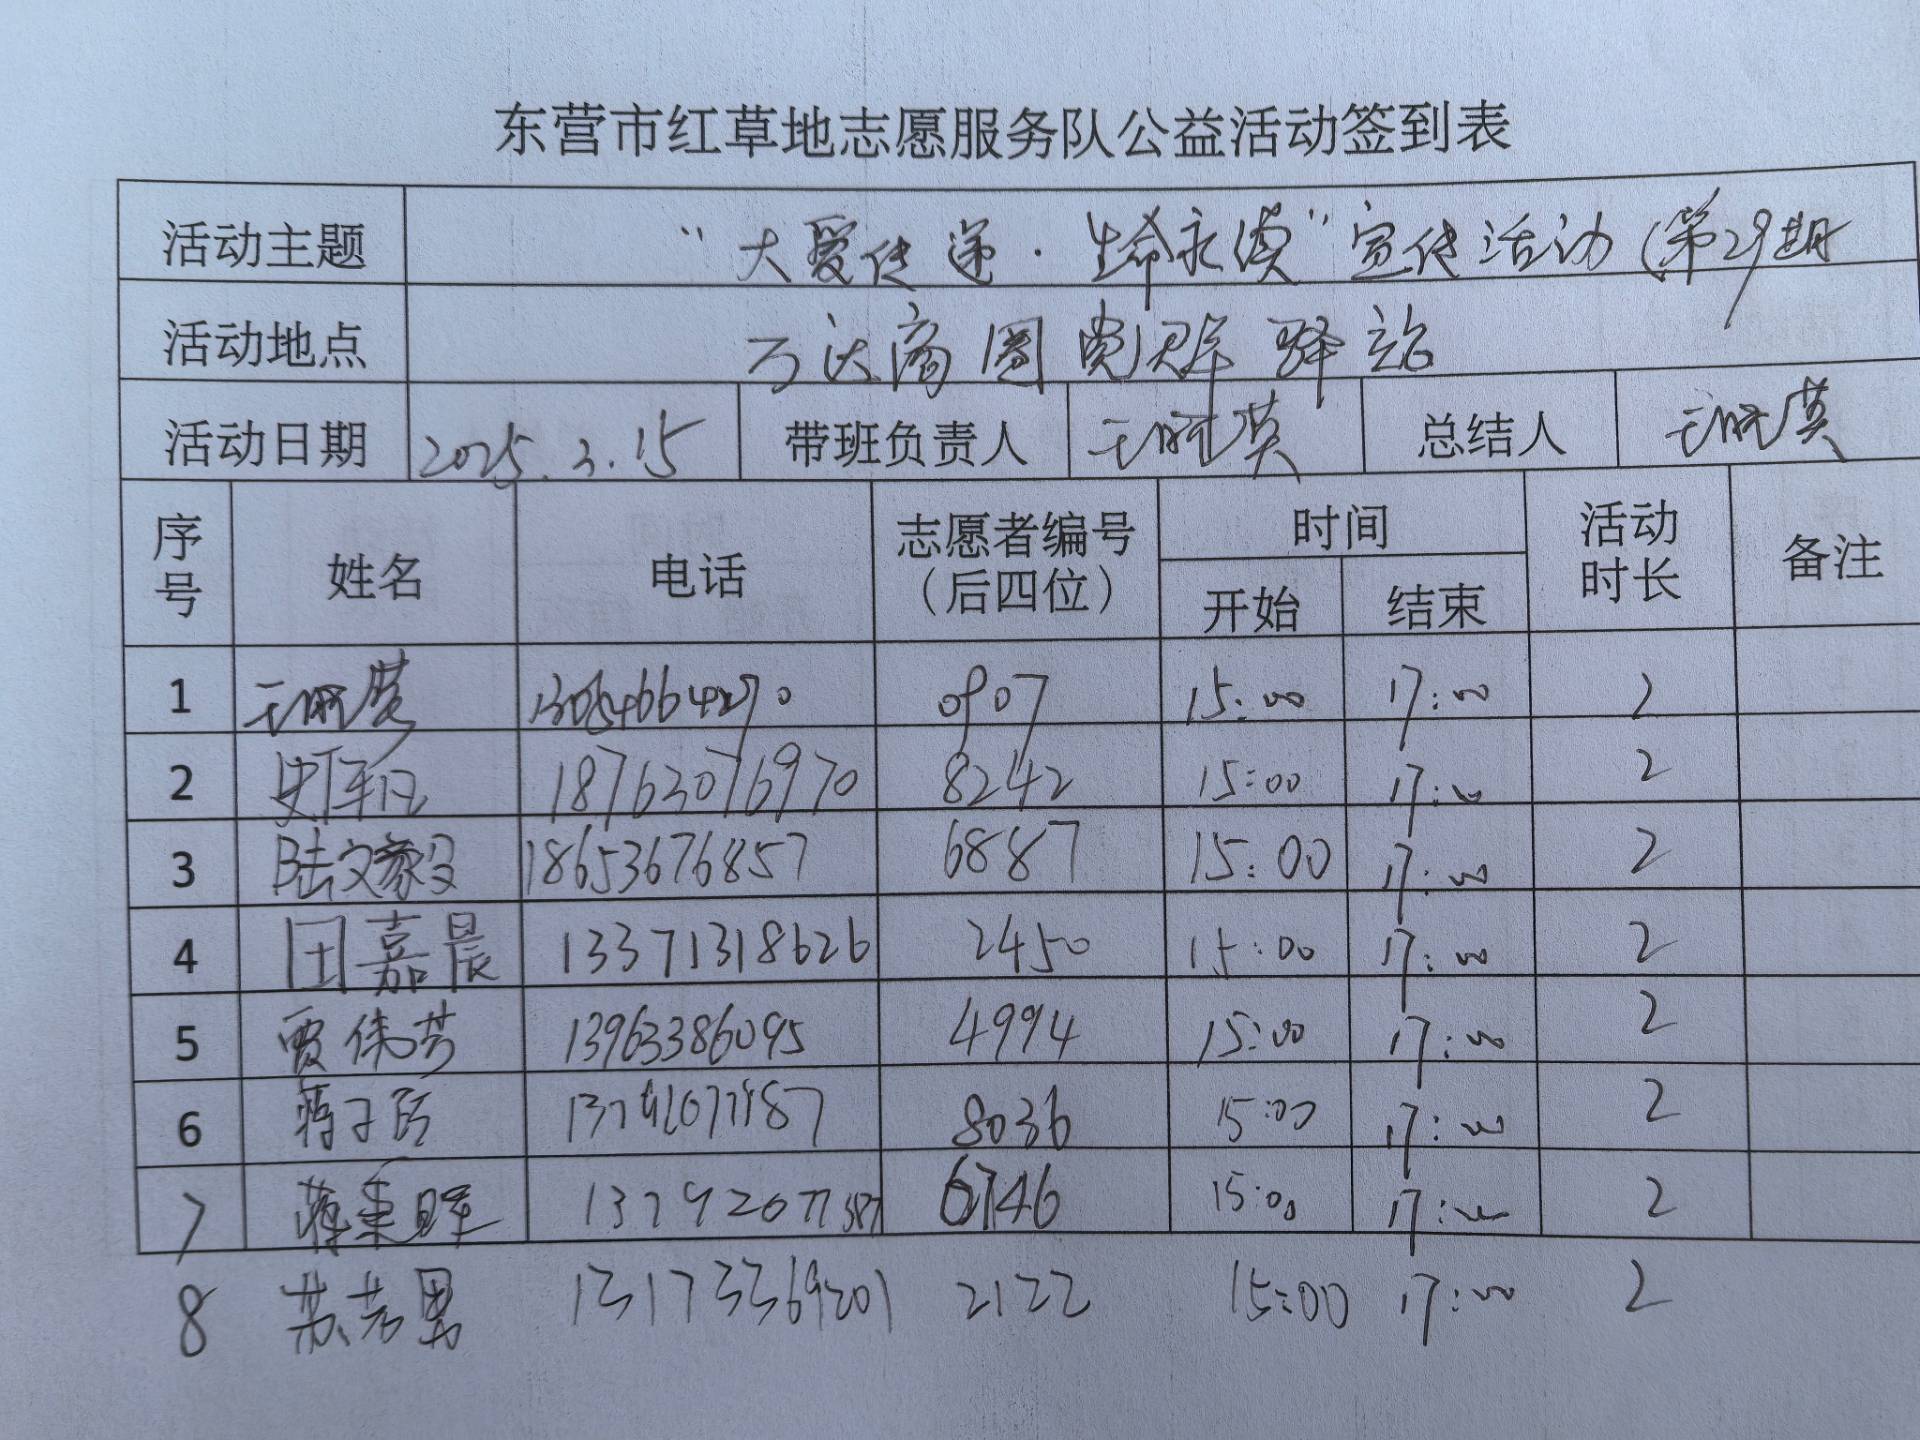 东营市红草地志愿服务队公益活动签到表
活动主题 “大爱传递·生命永续”宣传活动(第29期
活动地点 万达商圈 驿站
活动日期 2025.3.15 带班负责人 王 英 总结人 王 英
序号 姓名 电话 志愿者编号（后四位） 时间 开始 结束 活动时长 备注
1 王 英 0907 15:00 17:00 2
2 史军凡 18763076970 8242 15:00 17:00 2
3 陆文毅 18653676857 6887 15:00 17:00 2
4 田嘉晨 13371318626 2450 15:00 17:00 2
5 贾伟芳 13963386095 4994 15:00 17:00 2
6 蒋子 8036 15:00 17:00 2
7 蒋 6746 15:00 17:00 2
8 苏芳男 13173369201 2122 15:00 17:00 2